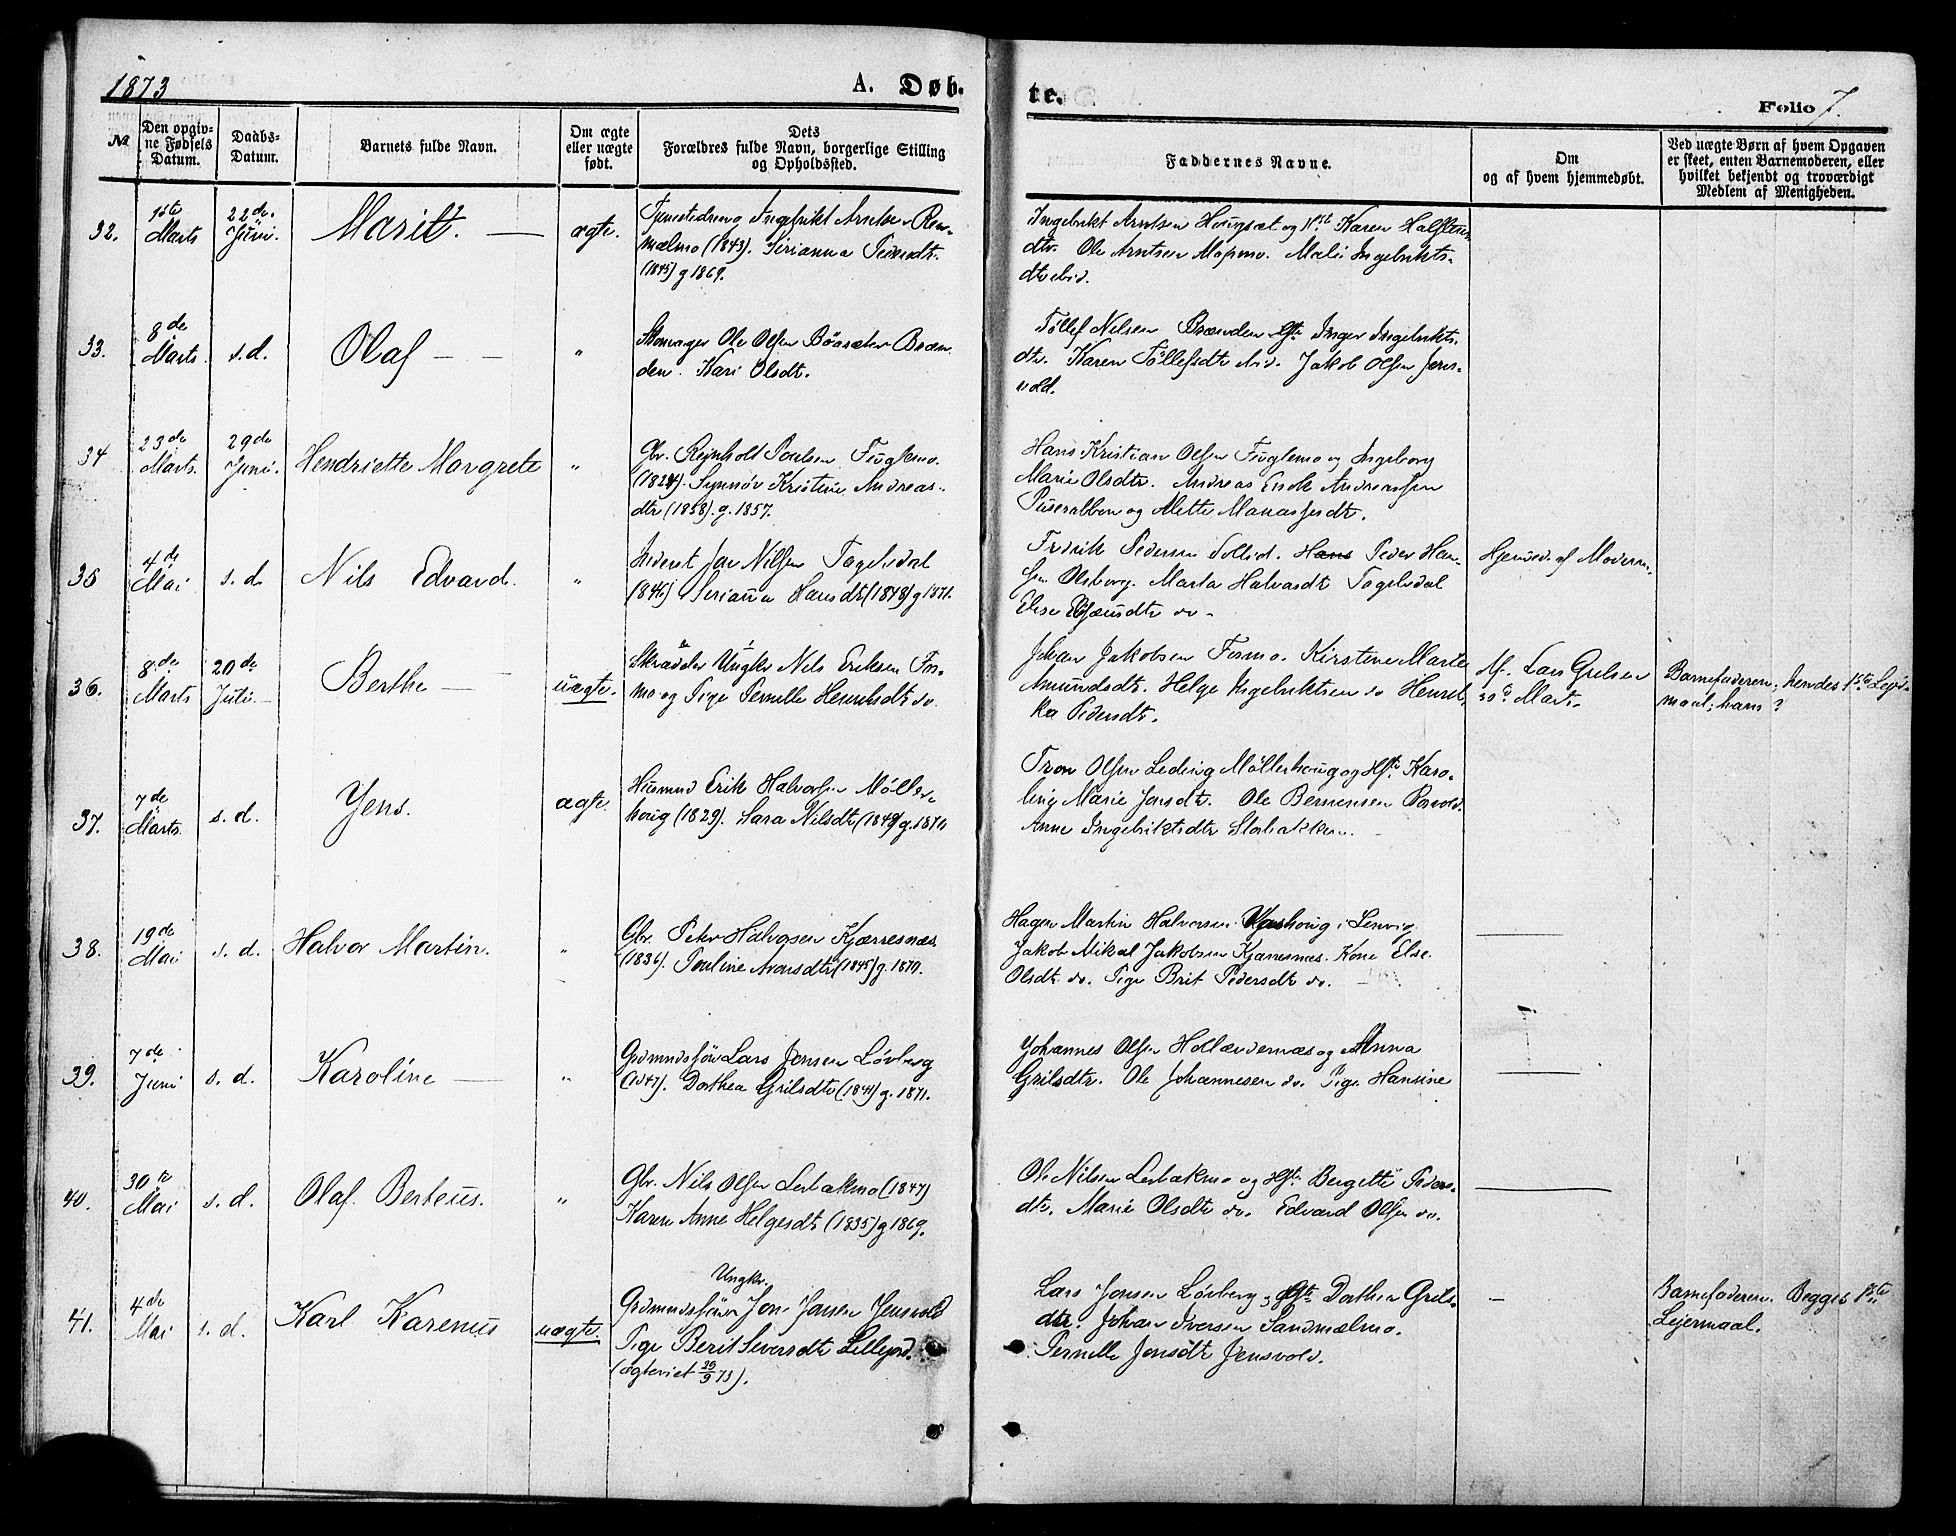 1873
A. Døb-
te.
Folio 7.
№
Den opgiv-
ne Fødsels
Datum.
Daabs-
Datum.
Barnets fulde Navn.
Om ægte
eller uægte
født.
Dets
Forældres fulde Navn, borgerlige Stilling
og Opholdssted.
Faddernes Navne.
Om
og af hvem hjemmedøbt.
Ved uægte Børn af hvem Opgaven
er skeet, enten Barnemoderen, eller
hvilket bekjendt og troværdigt
Medlem af Menigheden.
32.
1ste
Marts
22de
Juni.
Marit. —
ægte.
Ingebrikt Arntsen
mælmo (1843). Serianna Pedersdtr.
(1845) g 1869.
Ingebrikt Arntsen og Karen
dtr. Ole Arntsen Mali Ingebrikts-
dtr ibid.
33.
8de
Marts.
s. d.
Olaf — —
"
Ole Olsen Bøasæter Bræn-
den. Kari Olsdt.
Tøllef Nilsen Brænden Inger Ingebrikts-
dtr. Karen Tøllefsdtr ibid. Jakob Olsen Jens-
vold.
34
23de
Marts.
29de
Juni.
Hendriette Margrete
"
Gbr. Reinhold Poulsen Fuglemo.
(1824). Synnøv Kristine Andreas-
dtr (1838). g. 1857.
Hans Kristian Olsen Fuglemo og Ingeborg
Marie Olsdtr. Andreas Andreassen
og Mette Manassesdtr.
35
4de
Mai
s. d.
Nils Edvard.
"
Jon Nilsen Fagelvdal
(1846) Serianna Hansdt (1848) g 1871.
Fredrik Pedersen Solhid. Hans Peder Han-
sen Olsborg. Marta Halvardt Fagelvdal
Else do -
Hjemmed. af Moderen.
36.
8de
Marts
20de
Juli. —
Berthe —
uægte.
Skrædder Ungkr Nils Eriksen Fos-
mo og Pige Pernille Henriksdtr do.
Johan Jakobsen Fosmo. Kirstine Marte
Amundsdt. Helge Ingebriktsen do Henrik-
ka Pedersdt.
Af Lars Grelsen
30te Mart.
Barnefaderen; hendes 1ste Leier-
maal; hans?
37.
7de
Marts.
s. d.
Jens.
ægte.
Husmand Erik Halvorsen Møller-
houg (1829). Sara Nilsdt (1849) g. 1870
Tron Olsen Leding Møllerhoug og Hst. Karo-
line Marie Jonsdt. Ole Berntsen
Anne Ingebriktsdtr Storbakken.
38.
19de
Mai
s. d.
Halvor Martin.
"
Gbr. Peter Halvorsen Kjærresnæs
(1836). Pouline Aronsdtr (1845) g. 1870.
Hagen Martin Halvorsen i Lenvig.
Jakob Mikal Jakobsen Kjærresnæs. Kone Else
Olsdt. do. Pige Brit Pedersdt do.
39.
7de
Juni
s. d.
Karoline —
"
Grdmndsføder Lars Jensen Løvberg
(1847). Dorthea Grilsdtr (1844) g. 1871.
Johannes Olsen Hollændernæs og Anna
Grilsdtr. Ole Johannesen do. Pige Hansine
40.
30te
Mai
s. d.
Olaf Berteus.
"
Gbr. Nils Olsen Lerbakmo (1847)
Karen Anne Helgesdt (1835) g 1869.
Ole Nilsen Lerbakmo og Hst. Bergitte Peders-
dtr. Marie Olsdtr do. Edvard Olsen do.
41.
4de
Mai
s. d.
Karl Karenus
uægte.
Ungkr.
Jon Jonsen Jensvold
Pige Berit Siversdtr
(ægteviet 20/9 73).
Lars Jonsen Løvberg og Dorthea Grils-
dtr. Johan Iversen Sandmælmo.
Pernille Jonsdtr Jensvold.
—
Barnefaderen. Begges 1ste
Lejermaal.